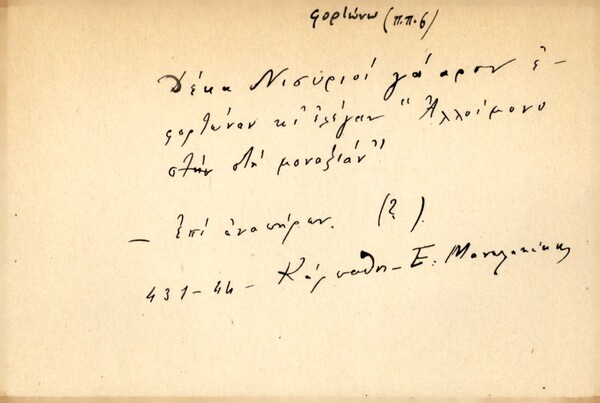 φορτώνω (π.π. 6)
Δέκα Νισύριοι γάαρον ἐ-
φορτώναν κι' ἐλέγαν "Ἀλλοίμονο
στὴν στὴ μοναξιάν"!
— Ἐπὶ ἀναπήρων. (ξ).
431-44- Κάρπαθη- Ε. Μανωλακάκης